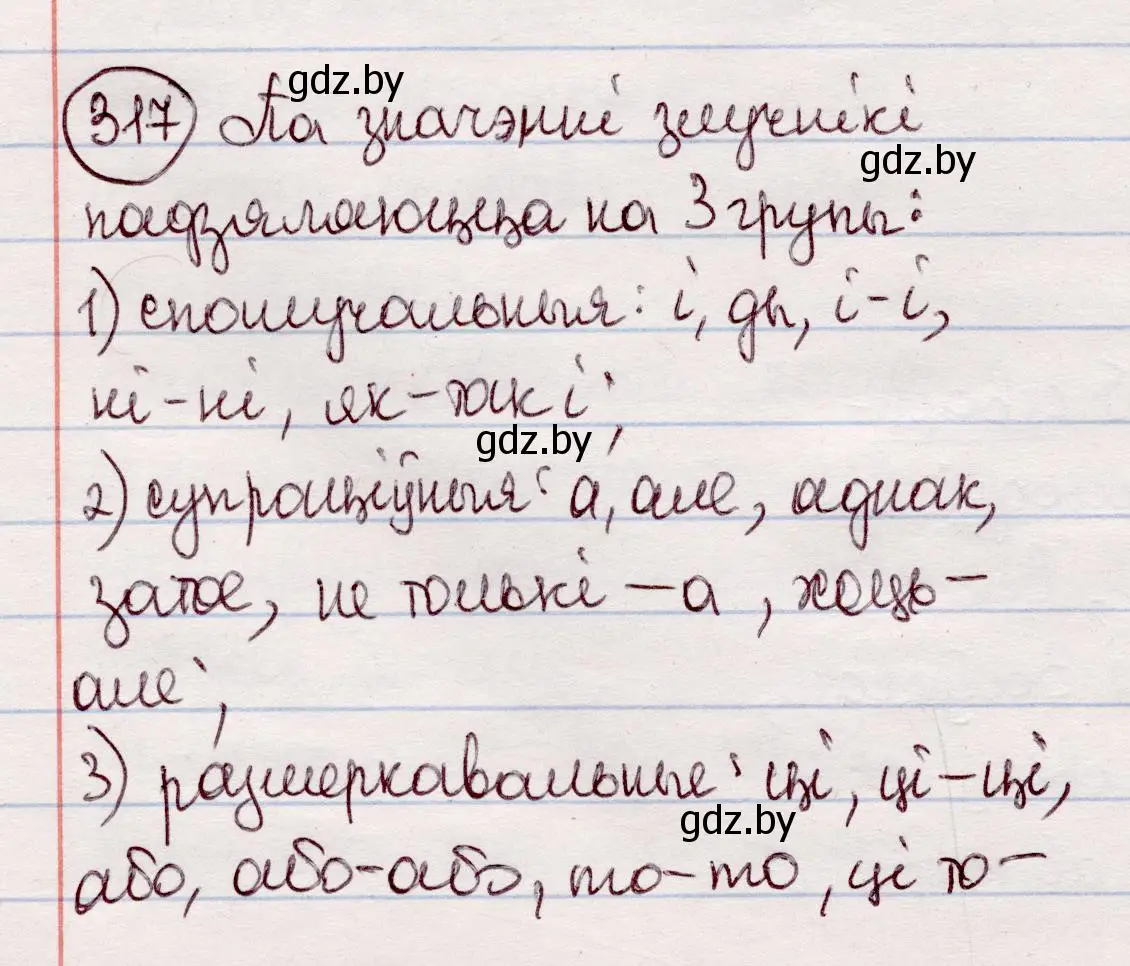 gdz.by
317 Па значэнні злучнікі
gdz.by
падзяляюцца на 3 групы:
1) спалучальныя: і, ды, і-і,
ні-ні, як-так і;
gdz.by
2) супраціўныя: а, але, аднак,
затое, не толькі – а, хоць –
але;
3) размеркавальные: ці, ці-ці,
gdz.by
або, або-або, то-то, ці то –